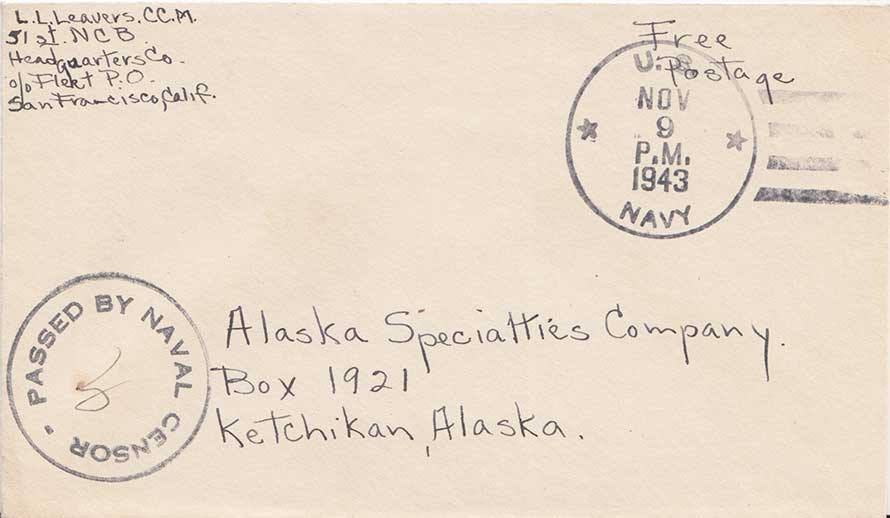 L.L.Leavers.C.C.M.
51st. N C B.
Headquarters Co.
c/o Fleet P.O.
San Francisco, Calif.
Free
Postage
U.S.
NOV
9
P.M.
1943
NAVY
PASSED BY NAVAL CENSOR
Alaska Specialties Company.
Box 1921
Ketchikan, Alaska.